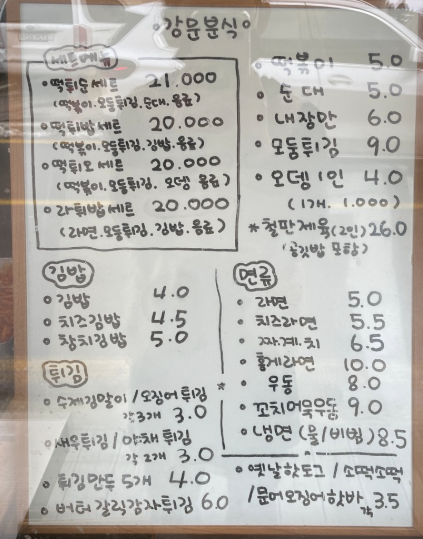 강문분식
세트메뉴
떡튀순세트 21.000
(떡볶이.모둠튀김.순대.음료)
떡튀밥세트 20.000
(떡볶이.모둠튀김.김밥.음료)
떡튀오세트 20.000
(떡볶이.모둠튀김. 오뎅 음료)
라튀밥세트 20.000
(라면.모둠튀김.김밥.음료)
떡볶이 5.0
순대 5.0
내장만 6.0
모둠튀김 9.0
오뎅1인 4.0
(1개. 1.000)
*철판제육(2인) 26.0
(공깃밥 포함)
김밥
김밥 4.0
치즈김밥 4.5
참치김밥 5.0
튀김
수제김말이 / 오징어튀김
각3개 3.0
새우튀김 / 야채튀김
각 2개 3.0
튀김만두 5개 4.0
버터갈릭감자튀김 6.0
면류
라면 5.0
치즈라면 5.5
짜계.치 6.5
홍게라면 10.0
* 우동 8.0
꼬치어묵우동 9.0
냉면 (물/비빔) 8.5
옛날핫도그 / 소떡소떡
/문어오징어핫바 각 3.5